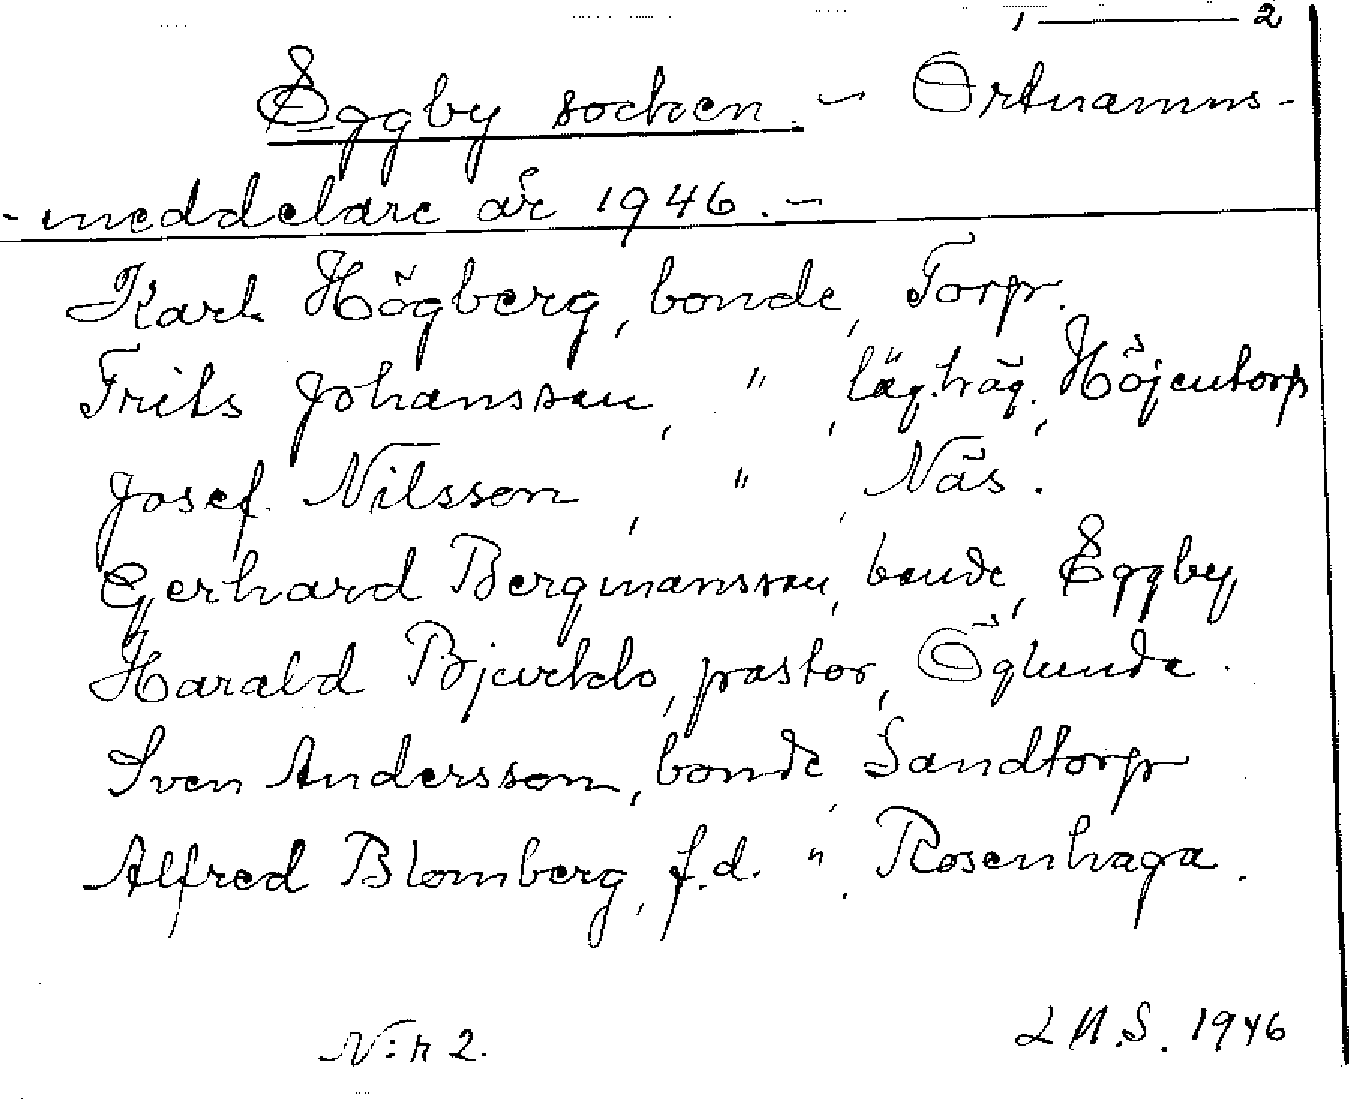 1 — 2
Eggby socken. – Ortnamns-
- meddelare år 1946. –
Karl Högberg, bonde, Torp.
Frits Johansson, " , läg.häg., Höjentorp
Josef Nilsson, " , Näs.
Gerhard Bergmansson, bonde, Eggby
Harald pastor, Öglunda.
Sven Andersson, bonde, Sandtorp
Alfred Blomberg, f.d. ", Rosenhaga.
N:r 2. L.N.S. 1946